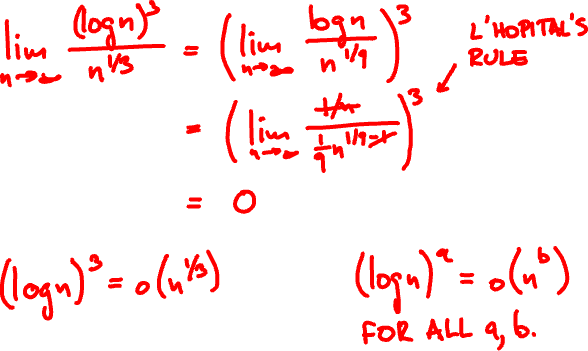 lim n→∞ (log n)^3 / n^{1/3} = (lim n→∞ log n / n^{1/9})^3 L'HOPITAL'S RULE
= (lim n→∞ 1/n / 1/9 n^{1/9-1})^3
= 0
(log n)^3 = o(n^{1/3}) (log n)^a = o(n^b)
FOR ALL a, b.